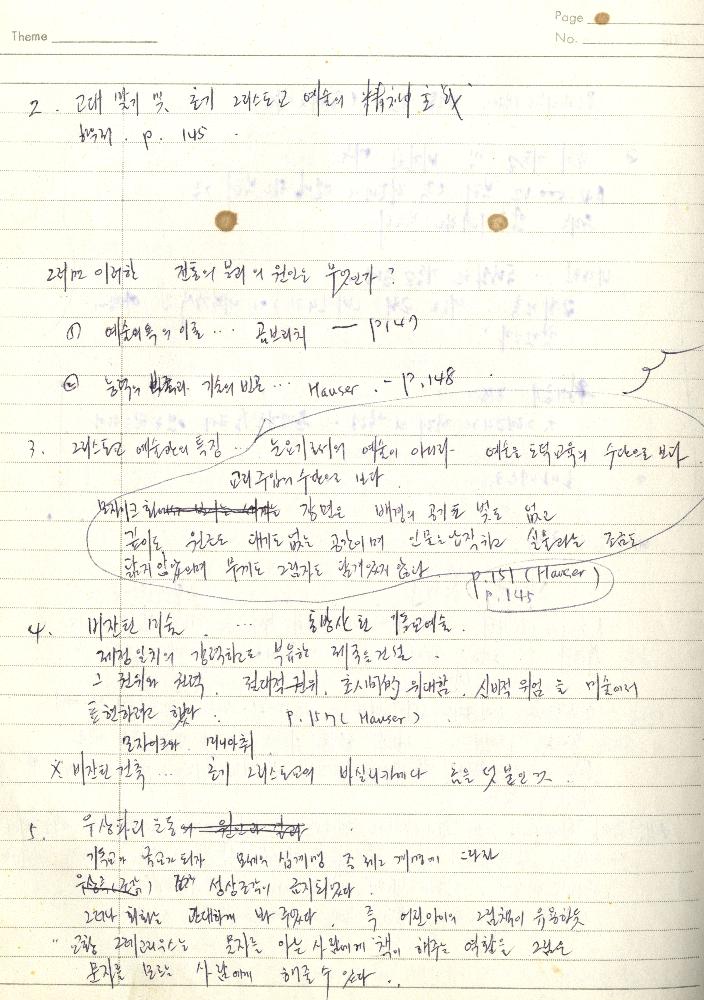 Page
Theme
No.
2. 고대 말기 및 초기 그리스도교 예술의 精神
p. 145
그러면 이러한 전통의 분리의 원인은 무엇인가?
① 예술의욕의 이론 ... 곰브리치 — p147
② 능력의 기술의 빈곤 ... Hauser. - p.148
3. 그리스도교 예술관의 특징 ... 눈요기로서의 예술이 아니라 예술을 도덕교육의 수단으로 보다
교리주입의 수단으로 보다.
모자이크 장면은 배경의 공기도 빛도 없고
깊이도 원근도 대기도 없는 공간이며 인물은 납작하고 실물과는 조금도
닮지 않았으며 무게도 그림자도 담겨있지 않다. p.151 (Hauser)
p.145
4. 비잔틴 미술 ... 동방산 된 기독교예술.
제정일치의 강력하고도 부유한 제국을 건설
그 권위와 권력. 절대적 권위. 초시대的 위대함. 신비적 위엄을 미술에서
표현하려고 했다. p.157 (Hauser)
모자이크와 미니아취
※ 비잔틴 건축 ... 초기 그리스도교의 바실리카에다 돔을 덧붙인 것.
5. 우상파괴 운동
기독교가 국교가 되자 모세의 십계명 중 제2계명에 따라
성상조각이 금지되었다.
그러나 회화는 관대하게 봐 주었다. 즉 어린아이의 그림책이 유용하듯
" 교황 그레고리우스는 문자를 아는 사람에게 책이 해주는 역할을 그림은
문자를 모르는 사람에게 해줄 수 있다..